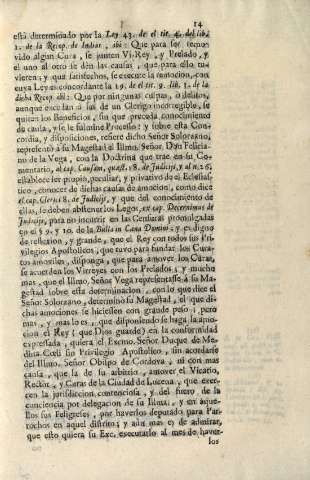 14
está determinado por la Ley 43. de el tit. 6. del lib.
1. de la Recop. de Indias, ibi: Que para ser remo-
vido algun Cura, se junten Vi-Rey, y Prelado, y
el uno al otro se dén las causas, que para ello tu-
vieren; y que satisfechos, se execute la remocion, con
cuya Ley es concordante la 19. de el tit. 9. lib. 1. de la
dicha Recop. ibi: Que por ningunas culpas, ò delitos,
aunque excedan à las de un Clerigo incorregible, se
quiten los Beneficios, sin que preceda conocimiento
de causa, y se le fulmine Processo: y sobre esta Con-
cordia, y disposiciones, refiere dicho Señor Solorzano
representò à su Magestad el Illmo. Señor. Don Felicia-
no de la Vega, con la Doctrina que trae en su Co-
mentario, al cap. Causam, quæst. 18. de Judicijs, y al n. 26.
establece ser propio, peculiar, y privativo de el Eclesias-
tico, conocer de dichas causas de amocion, como dice
el cap. Clerici 8. de Judicijs, y que del conocimiento de
ellas, lo deben abstener los Legos, ex cap. Decernimus de
Judicijs, para no incurrir en las Censuras promulgadas
en el 9. y 10. de la Bulla in Cœna Domini: y es digno
de reflexion, y grande, que el Rey con todos sus Pri-
vilegios Apostolicos, que tuvo para fundar los Cura-
tos amovibles, disponga, que para amover los Curas,
se acuerden los Virreyes con los Prelados; y mucho
mas, que el Illmo. Señor Vega representasse à su Ma-
gestad sobre esta determinacion, con lo que dice el
Señor Solorzano, determinò su Magestad, el que di-
chas amociones se hiciessen con grande peso; pero
mas, y mas lo es, que disponiendo se haga la amo-
cion el Rey (que Dios guarde) en la conformidad
expressada, quiera el Excmo. Señor Duque de Me-
dina Cœli sin Privilegio Apostolico, sin acordarse
del Illmo. Señor Obispo de Cordova, ni con mas
causa, que la de su arbitrio, amover el Vicario,
Rector, y Curas de la Ciudad de Lucena, que exer-
cen la jurisdiccion contenciosa, y del fuero de la
conciencia por delegacion de su Illma. y en aque-
llos sus Feligreses, por haverlos deputado para Par-
rochos en aquel distrito; y aun mas es de admirar,
que esto quiera su Exc. executarlo al mes de haver-
los